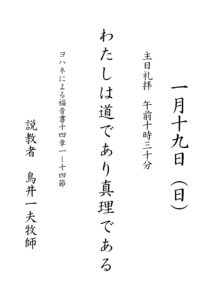 一月十九日（日）
主日礼拝　午前十時三十分
わたしは道であり真理である
ヨハネによる福音書十四章一ー十四節
説教者　鳥井一夫牧師